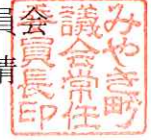 員会
みやき町
議会常任
委員長印